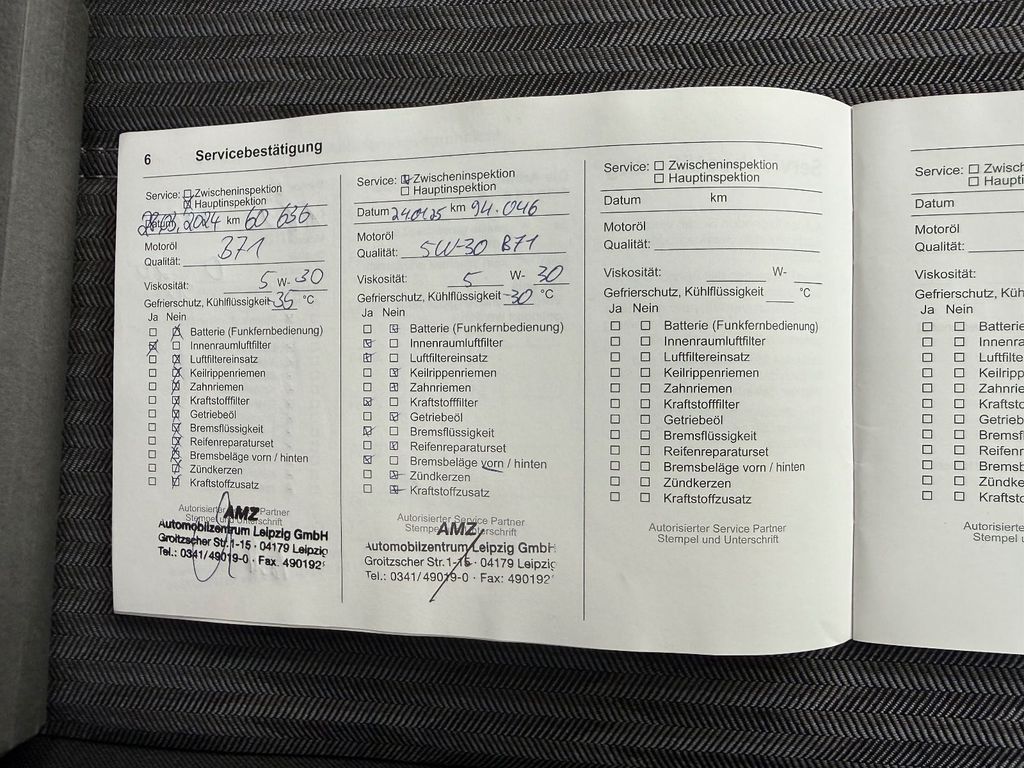 6 Servicebestätigung
Service: ☐ Zwischeninspektion
☒ Hauptinspektion
Datum 28.03.2024 km 60 636
Motoröl
Qualität: B71
Viskosität: 5 W- 30
Gefrierschutz, Kühlflüssigkeit -35 °C
Ja Nein
☐ ☒ Batterie (Funkfernbedienung)
☒ ☐ Innenraumluftfilter
☐ ☒ Luftfiltereinsatz
☐ ☒ Keilrippenriemen
☐ ☒ Zahnriemen
☐ ☒ Kraftstofffilter
☐ ☒ Getriebeöl
☐ ☒ Bremsflüssigkeit
☐ ☒ Reifenreparaturset
☐ ☒ Bremsbeläge vorn / hinten
☐ ☒ Zündkerzen
☐ ☒ Kraftstoffzusatz
Autorisierter Service Partner
Stempel und Unterschrift
AMZ
Automobilzentrum Leipzig GmbH
Groitzscher Str. 1-15 · 04179 Leipzig
Tel.: 0341/49019-0 · Fax. 490192
Service: ☒ Zwischeninspektion
☐ Hauptinspektion
Datum 240125 km 94.046
Motoröl
Qualität: 5W-30 B71
Viskosität: 5 W- 30
Gefrierschutz, Kühlflüssigkeit -30 °C
Ja Nein
☐ ☒ Batterie (Funkfernbedienung)
☒ ☐ Innenraumluftfilter
☒ ☐ Luftfiltereinsatz
☐ ☒ Keilrippenriemen
☐ ☒ Zahnriemen
☒ ☐ Kraftstofffilter
☐ ☒ Getriebeöl
☒ ☐ Bremsflüssigkeit
☐ ☒ Reifenreparaturset
☒ ☐ Bremsbeläge vorn / hinten
☐ ☒ Zündkerzen
☐ ☒ Kraftstoffzusatz
Autorisierter Service Partner
Stempel und Unterschrift
AMZ
Automobilzentrum Leipzig GmbH
Groitzscher Str. 1-15 · 04179 Leipzig
Tel.: 0341/49019-0 · Fax: 490192
Service: ☐ Zwischeninspektion
☐ Hauptinspektion
Datum km
Motoröl
Qualität:
Viskosität: W-
Gefrierschutz, Kühlflüssigkeit °C
Ja Nein
☐ ☐ Batterie (Funkfernbedienung)
☐ ☐ Innenraumluftfilter
☐ ☐ Luftfiltereinsatz
☐ ☐ Keilrippenriemen
☐ ☐ Zahnriemen
☐ ☐ Kraftstofffilter
☐ ☐ Getriebeöl
☐ ☐ Bremsflüssigkeit
☐ ☐ Reifenreparaturset
☐ ☐ Bremsbeläge vorn / hinten
☐ ☐ Zündkerzen
☐ ☐ Kraftstoffzusatz
Autorisierter Service Partner
Stempel und Unterschrift
Service: ☐ Zwisc
☐ Haupti
Datum
Motoröl
Qualität:
Viskosität:
Gefrierschutz, Küh
Ja Nein
☐ ☐ Batterie
☐ ☐ Innenra
☐ ☐ Luftfilte
☐ ☐ Keilripp
☐ ☐ Zahnrie
☐ ☐ Kraftsto
☐ ☐ Getrieb
☐ ☐ Bremsfl
☐ ☐ Reifenr
☐ ☐ Bremsb
☐ ☐ Zündke
☐ ☐ Kraftsto
Autorisierte
Stempel u